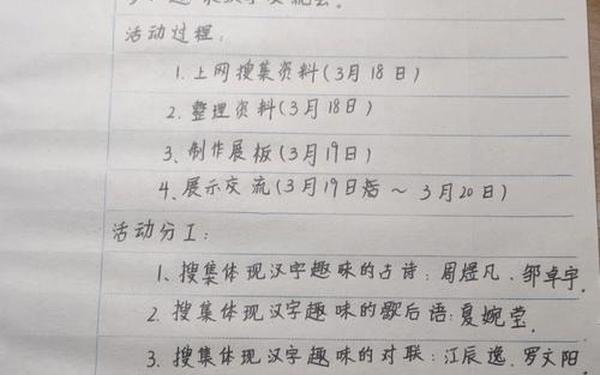 趣味汉字交流会。
活动过程:
1.上网搜集资料(3月18日)
2.整理资料(3月18日)
3、制作展板(3月19日)
4、展示交流(3月19日~3月20日)
活动分工:
1、搜集体现汉字趣味的古诗:周煜凡、邹卓宇.
2.搜集体现汉字趣味的歇后语:夏婉莹.
3.搜集体现汉字趣味的对联:江辰逸、罗文阳